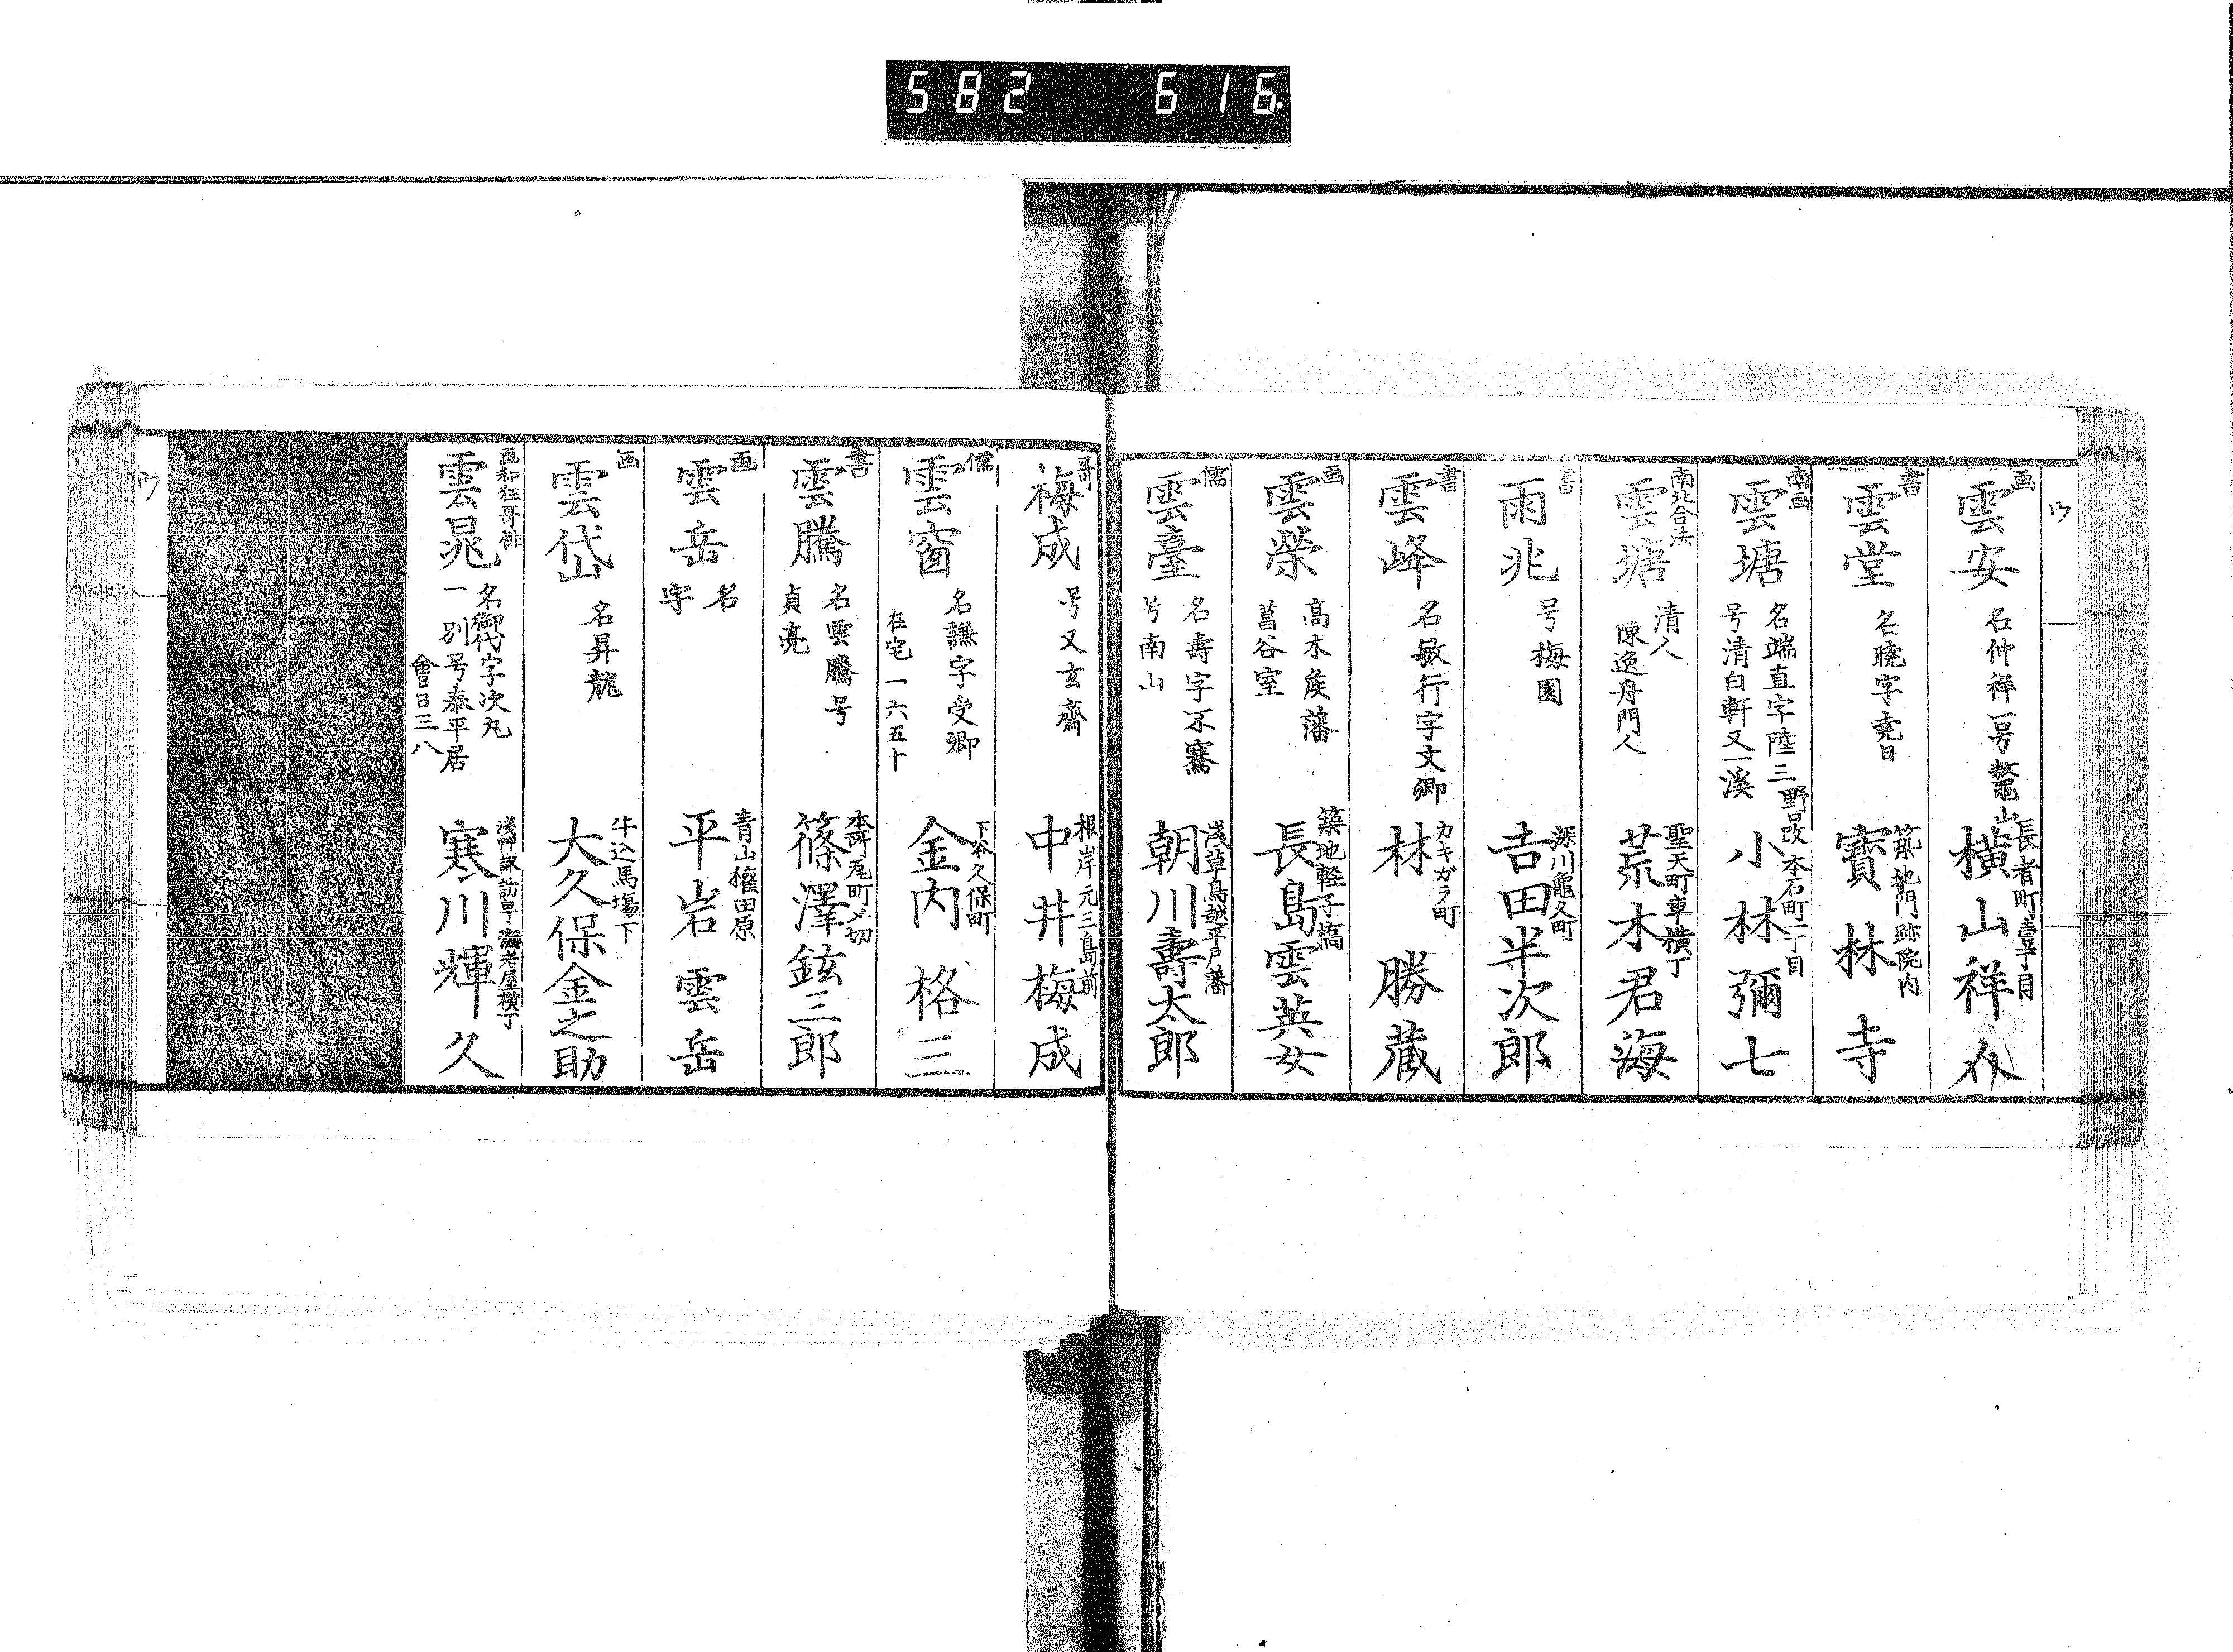 582 616
ウ
画
雲安
名仲祥一号鼇山
長者町壹丁目
横山祥介
書
雲堂
名曉字堯日
築地門跡院内
寳林寺
南画
雲塘
名端直字陸三
号清白軒又一溪
野呂改
本石町一丁目
小林彌七
南北合法
雲塘
清人
陳逸舟門人
聖天町車横丁
荒木君海
書
雨兆
号梅園
深川龜久町
吉田半次郎
書
雲峰
名敏行字文卿
カキガラ町
林勝蔵
画
雲榮
髙木矦藩
菖谷室
築地軽子橋
長島雲英女
儒
雲臺
名壽字不騫
号南山
浅草鳥越平戸藩
朝川壽太郎
哥
梅成
号又玄齋
根岸元三島前
中井梅成
儒
雲窗
名謙字受卿
在宅一六五十
下谷久保町
金内格三
書
雲騰
名雲騰号
貞亮
本所尾町〆切
篠澤鉉三郎
画
雲岳
名
字
青山權田原
平岩雲岳
画
雲岱
名昇龍
牛込馬塲下
大久保金之助
画和狂哥俳
雲晁
名御代字次丸
一別号泰平居
會日三八
浅艸諏訪町海老屋横丁
寒川輝久
ウ